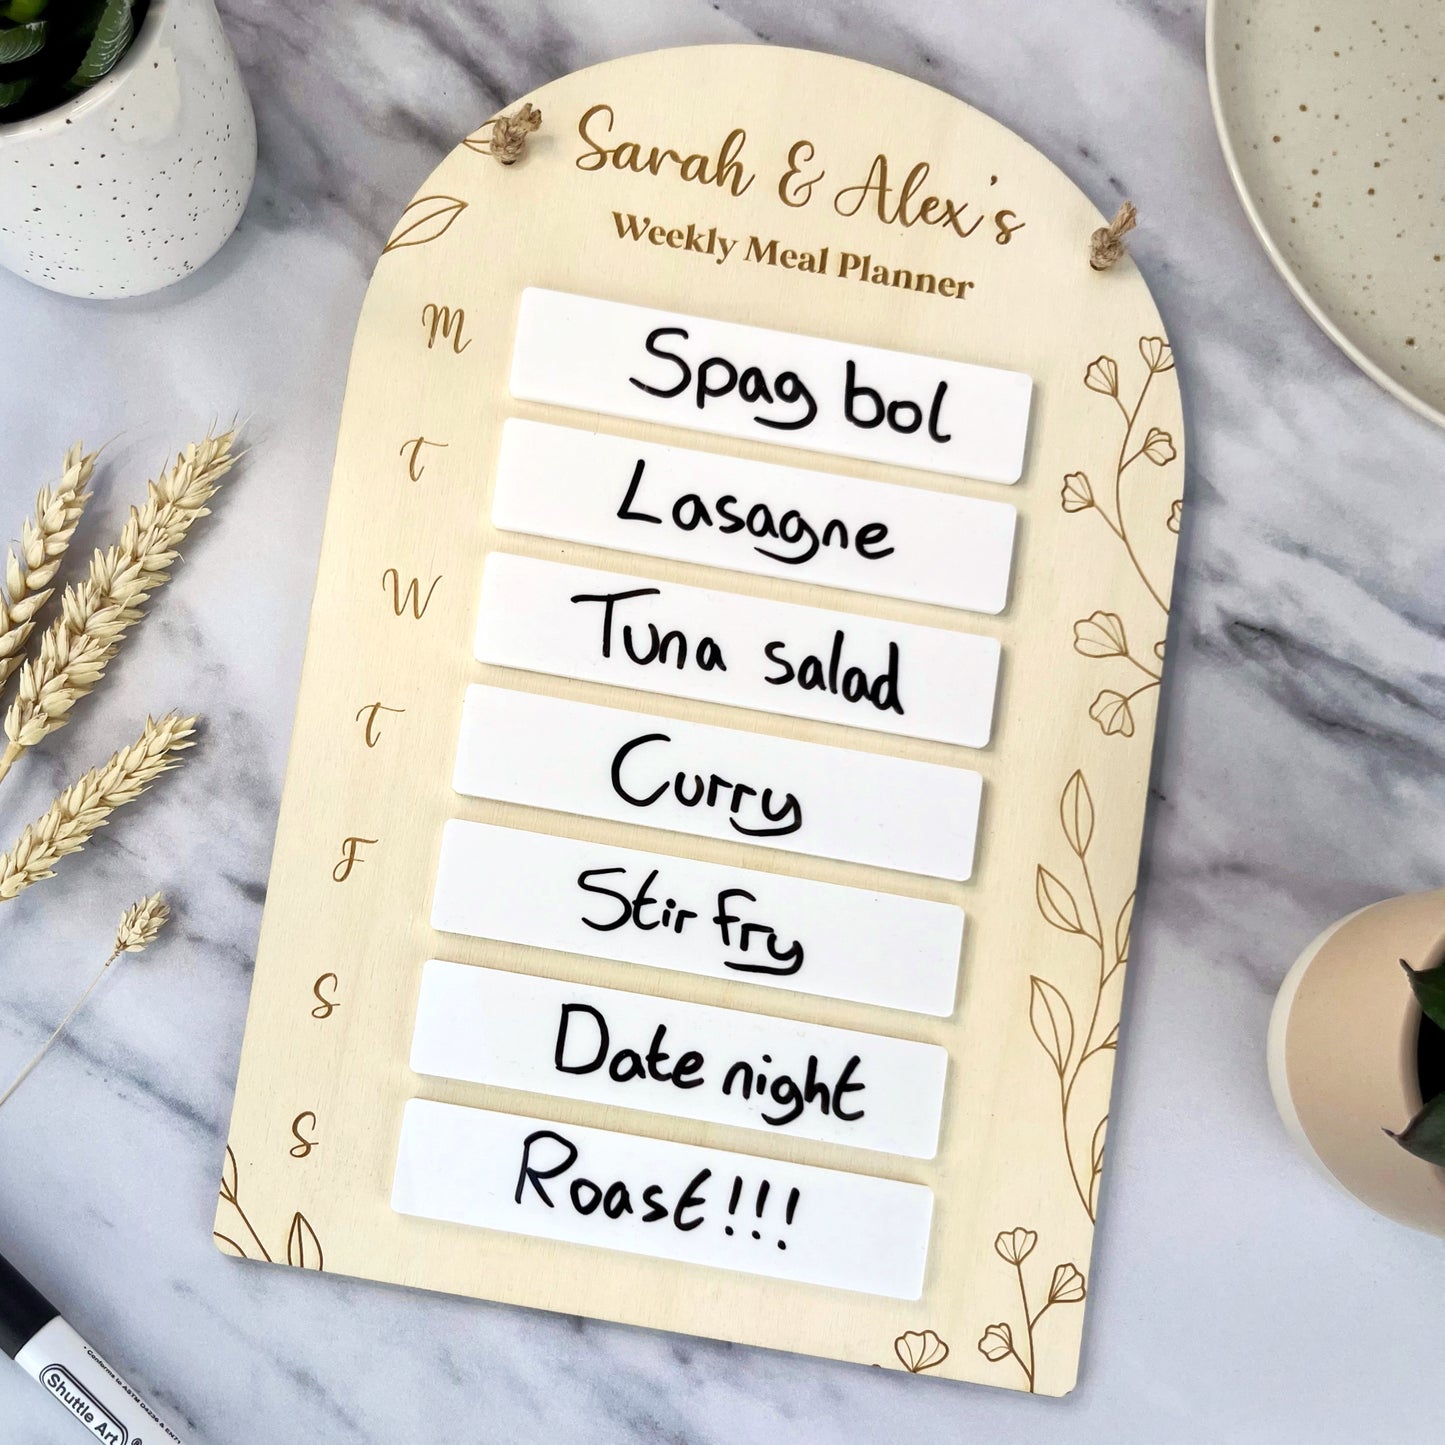 Sarah & Alex's
Weekly Meal Planner
M Spag bol
T Lasagne
W Tuna salad
T Curry
F Stir fry
S Date night
S Roast!!!
Conforms to ASTM D4236 & EN71
Shuttle Art